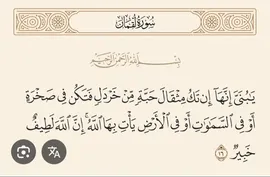 سُورَةُ لُقْمَان
بِسْمِ اللَّهِ الرَّحْمَٰنِ الرَّحِيمِ
يَٰبُنَيَّ إِنَّهَآ إِن تَكُ مِثْقَالَ حَبَّةٍ مِّنْ خَرْدَلٍ فَتَكُن فِى صَخْرَةٍ
أَوْ فِى ٱلسَّمَٰوَٰتِ أَوْ فِى ٱلْأَرْضِ يَأْتِ بِهَا ٱللَّهُ ۚ إِنَّ ٱللَّهَ لَطِيفٌ
خَبِيرٌ ١٦